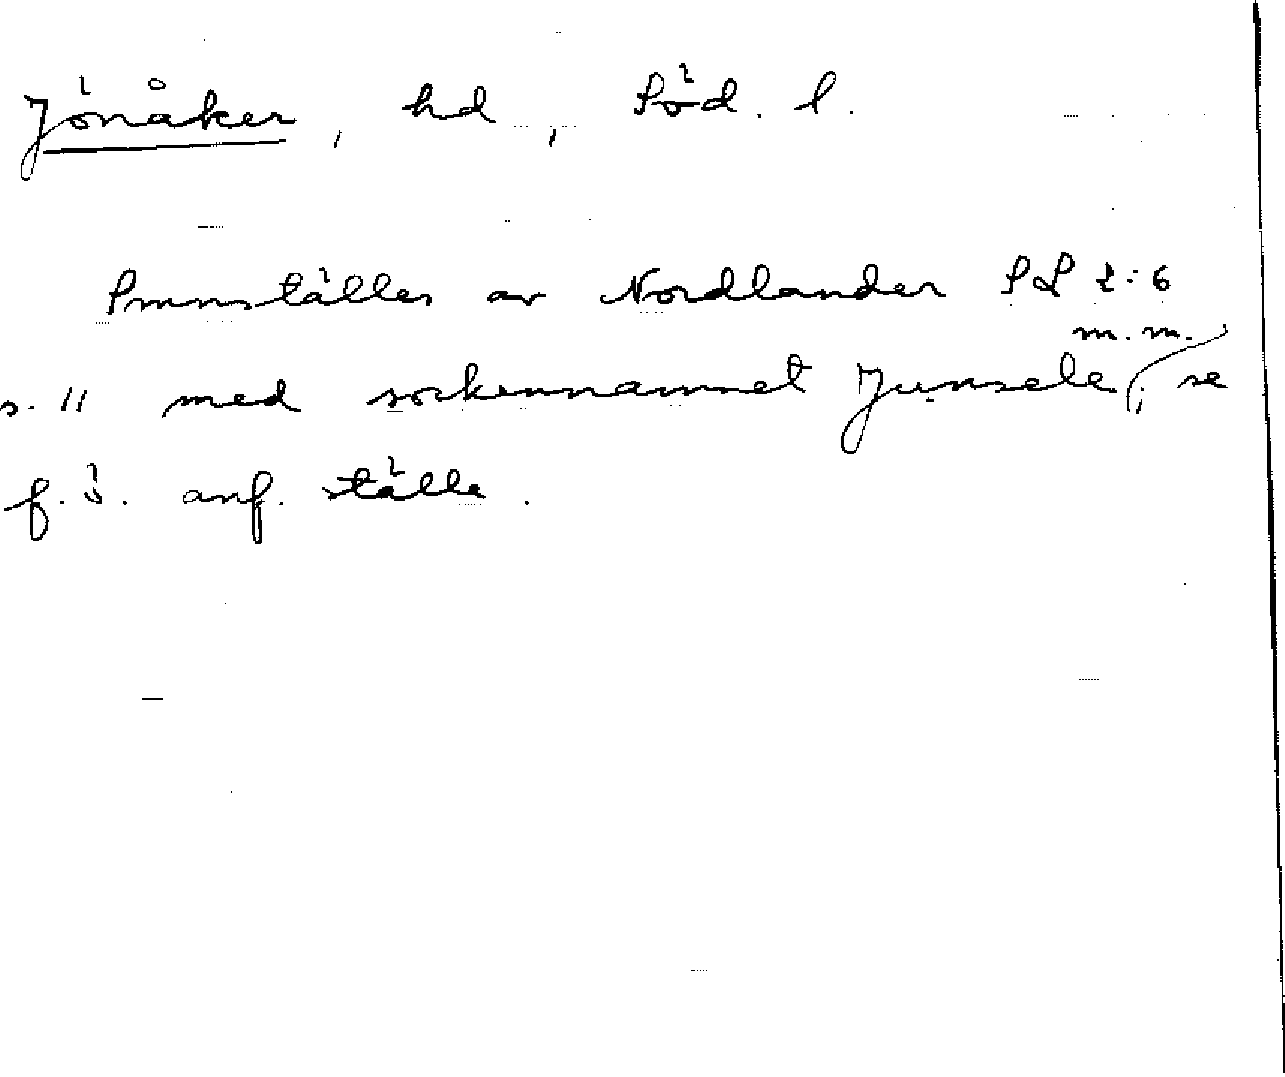 Jönåker, hd, Söd. l.
Smnställes av Nordlander SL 2:6
m. m.
s. 11 med sockennamnet Junsele; se
f. ö. anf. ställe.